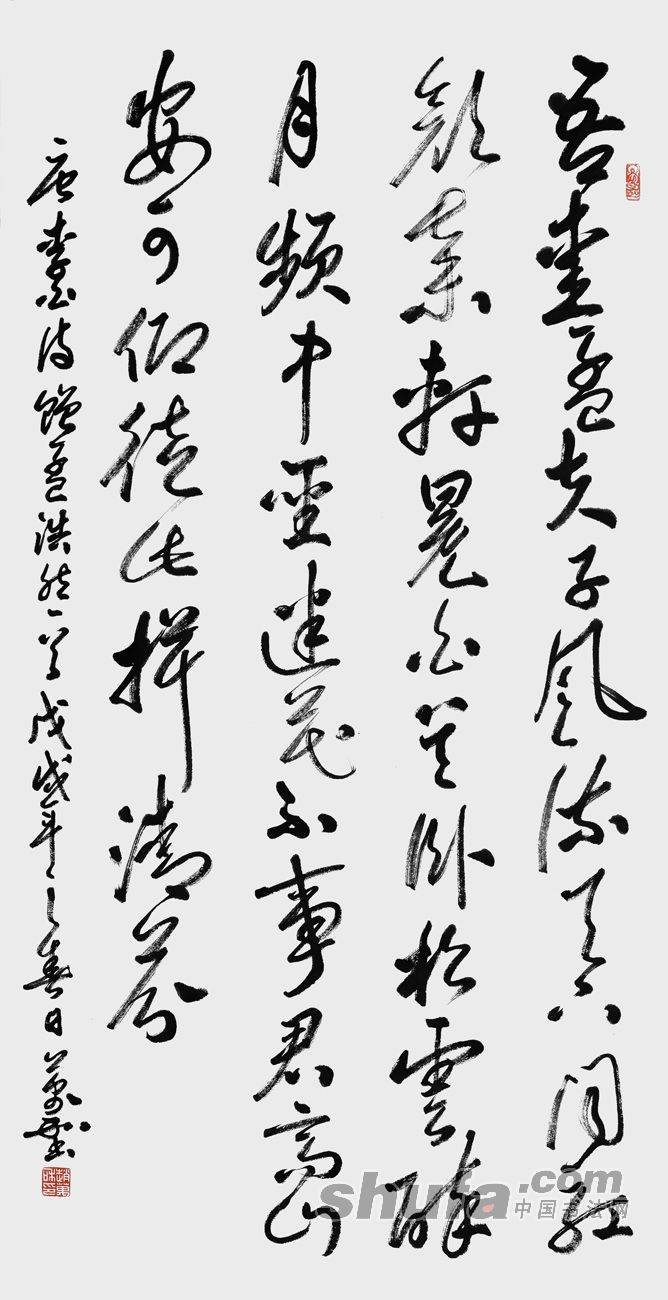 吾愛孟夫子風流天下聞紅
顏棄軒冕白首臥松雲醉
月頻中聖迷花不事君高山
安可仰徒此揖清芬
唐李白詩贈孟浩然一首戊戌年之春日萬
shufa.com
中国书法网